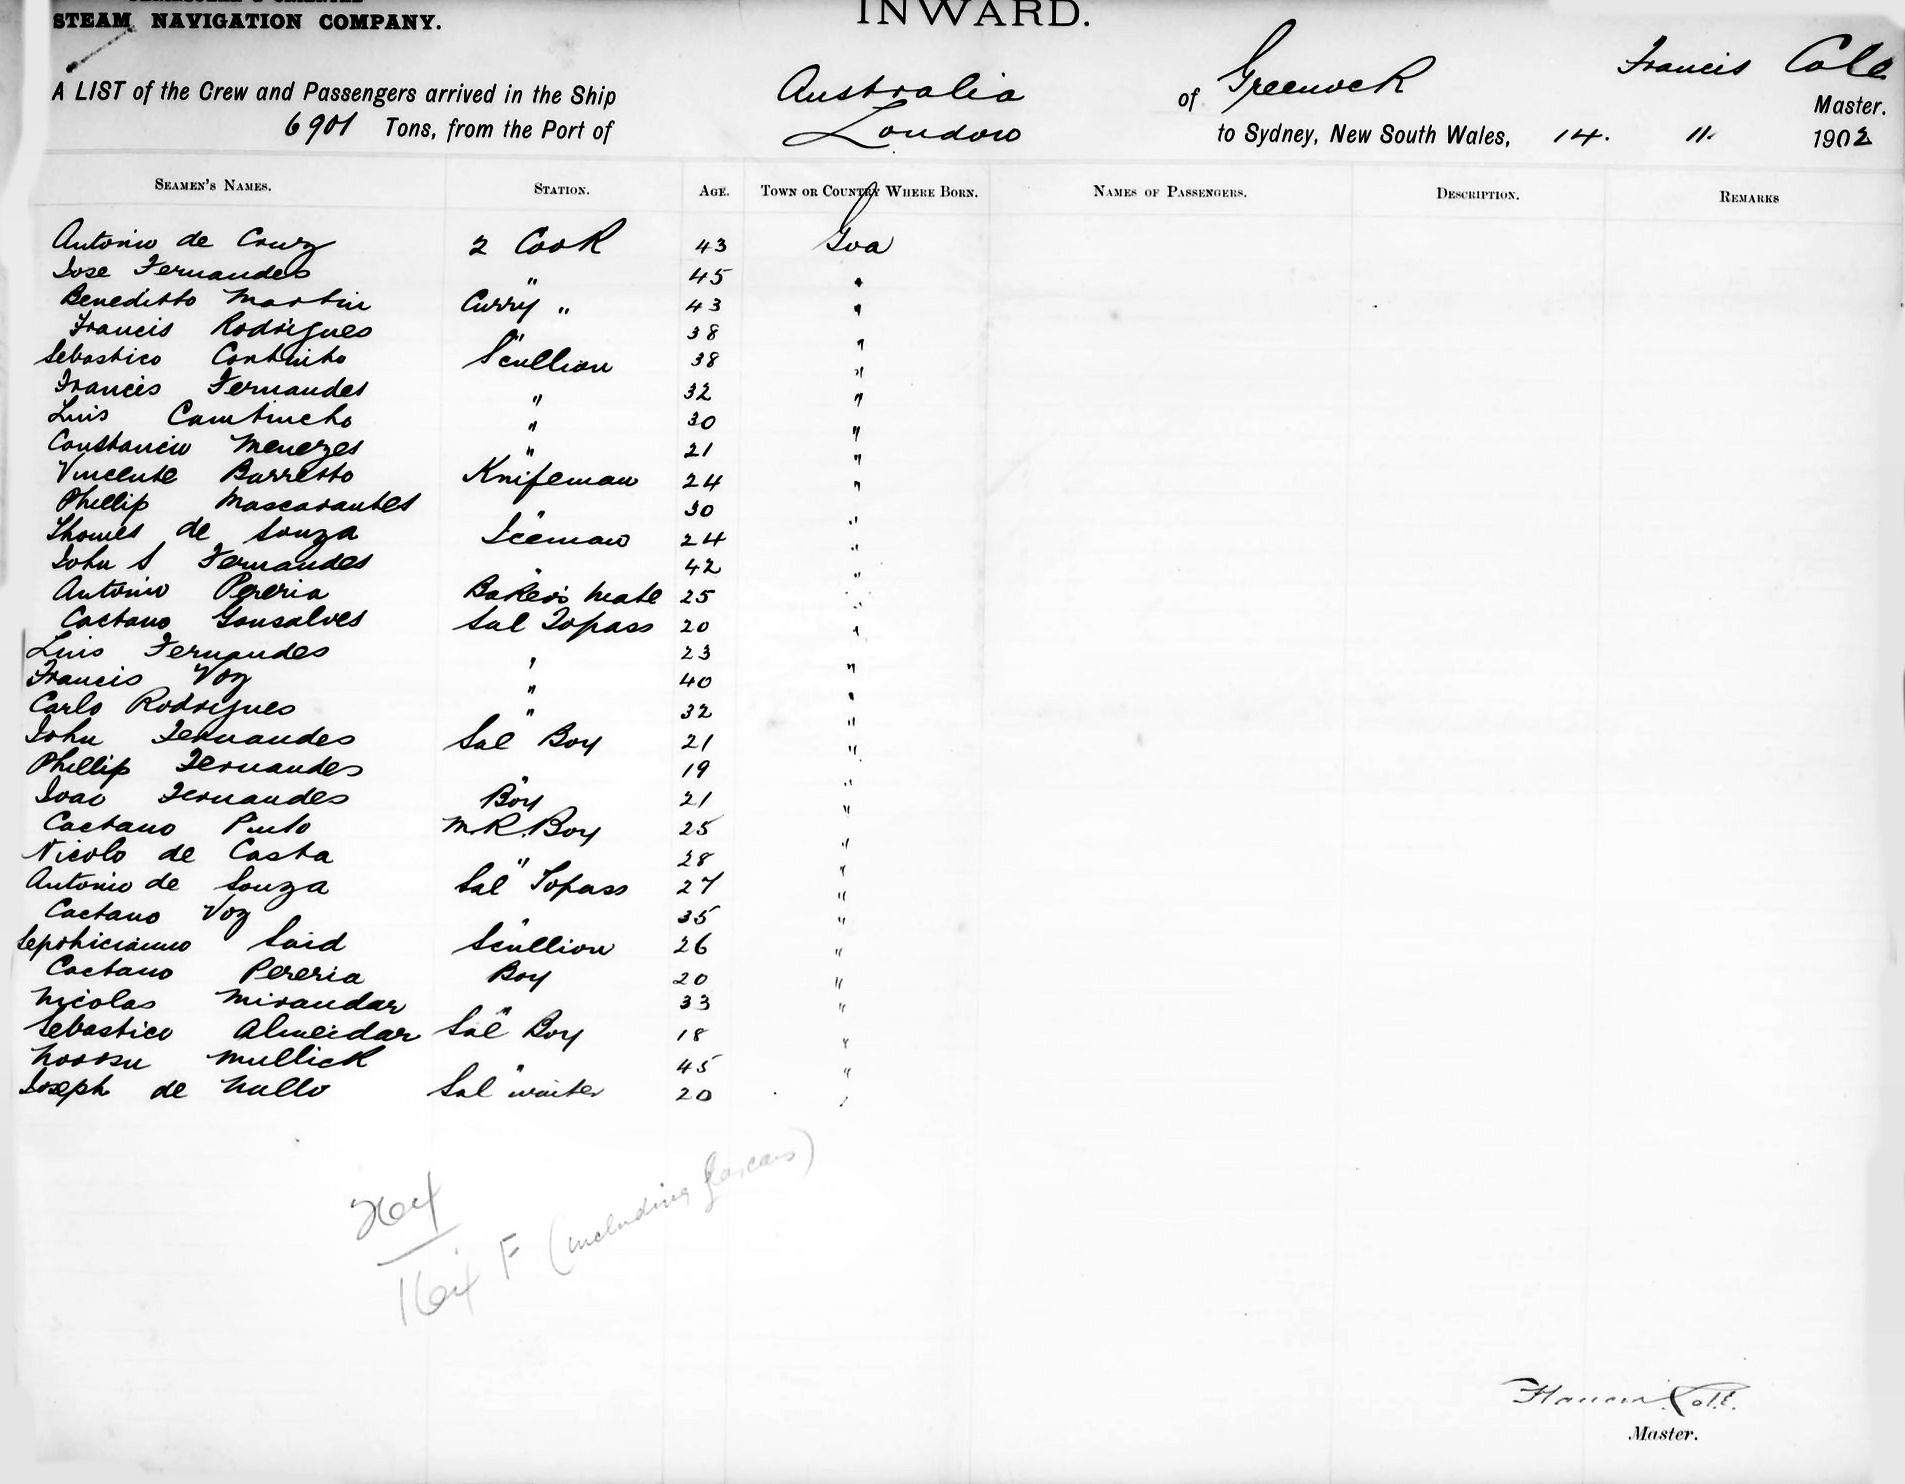 STEAM NAVIGATION COMPANY.
INWARD.
A LIST of the Crew and Passengers arrived in the Ship Australia of Greenock Francis Cole Master.
6901 Tons, from the Port of London to Sydney, New South Wales, 14. 11. 1902
SEAMEN'S NAMES. STATION. AGE. TOWN OR COUNTRY WHERE BORN. NAMES OF PASSENGERS. DESCRIPTION. REMARKS
Antonio de Cruz 2 Cook 43 Goa
Jose Fernandes " 45 "
Beneditto Martin Curry " 43 "
Francis Rodrigues " 38 "
Sebastico Scullion 38 "
Francis Fernandes " 32 "
Luis " 30 "
Constancio Menezes " 21 "
Vincente Barretto Knifeman 24 "
Phillip Mascarantes " 30 "
Thomes de Souza Iceman 24 "
John S Fernandes " 42 "
Antonio Pereria Baker's Mate 25 "
Caetano Gonsalves Sal Topass 20 "
Luis Fernandes " 23 "
Francis Voz " 40 "
Carlo Rodrigues " 32 "
John Fernandes Sal Boy 21 "
Phillip Fernandes " 19 "
Joao Fernandes Boy 21 "
Caetano Pinto M.R. Boy 25 "
Nicolo de Costa " 28 "
Antonio de Souza Sal Topass 27 "
Caetano Voz " 35 "
Said Scullion 26 "
Caetano Pereria Boy 20 "
Nicolas Mirandar " 33 "
Sebastico Almeidar Sal Boy 18 "
Mullick " 45 "
Joseph de Mello Sal waiter 20 "
F (including Lascars)
Francis Cole
Master.